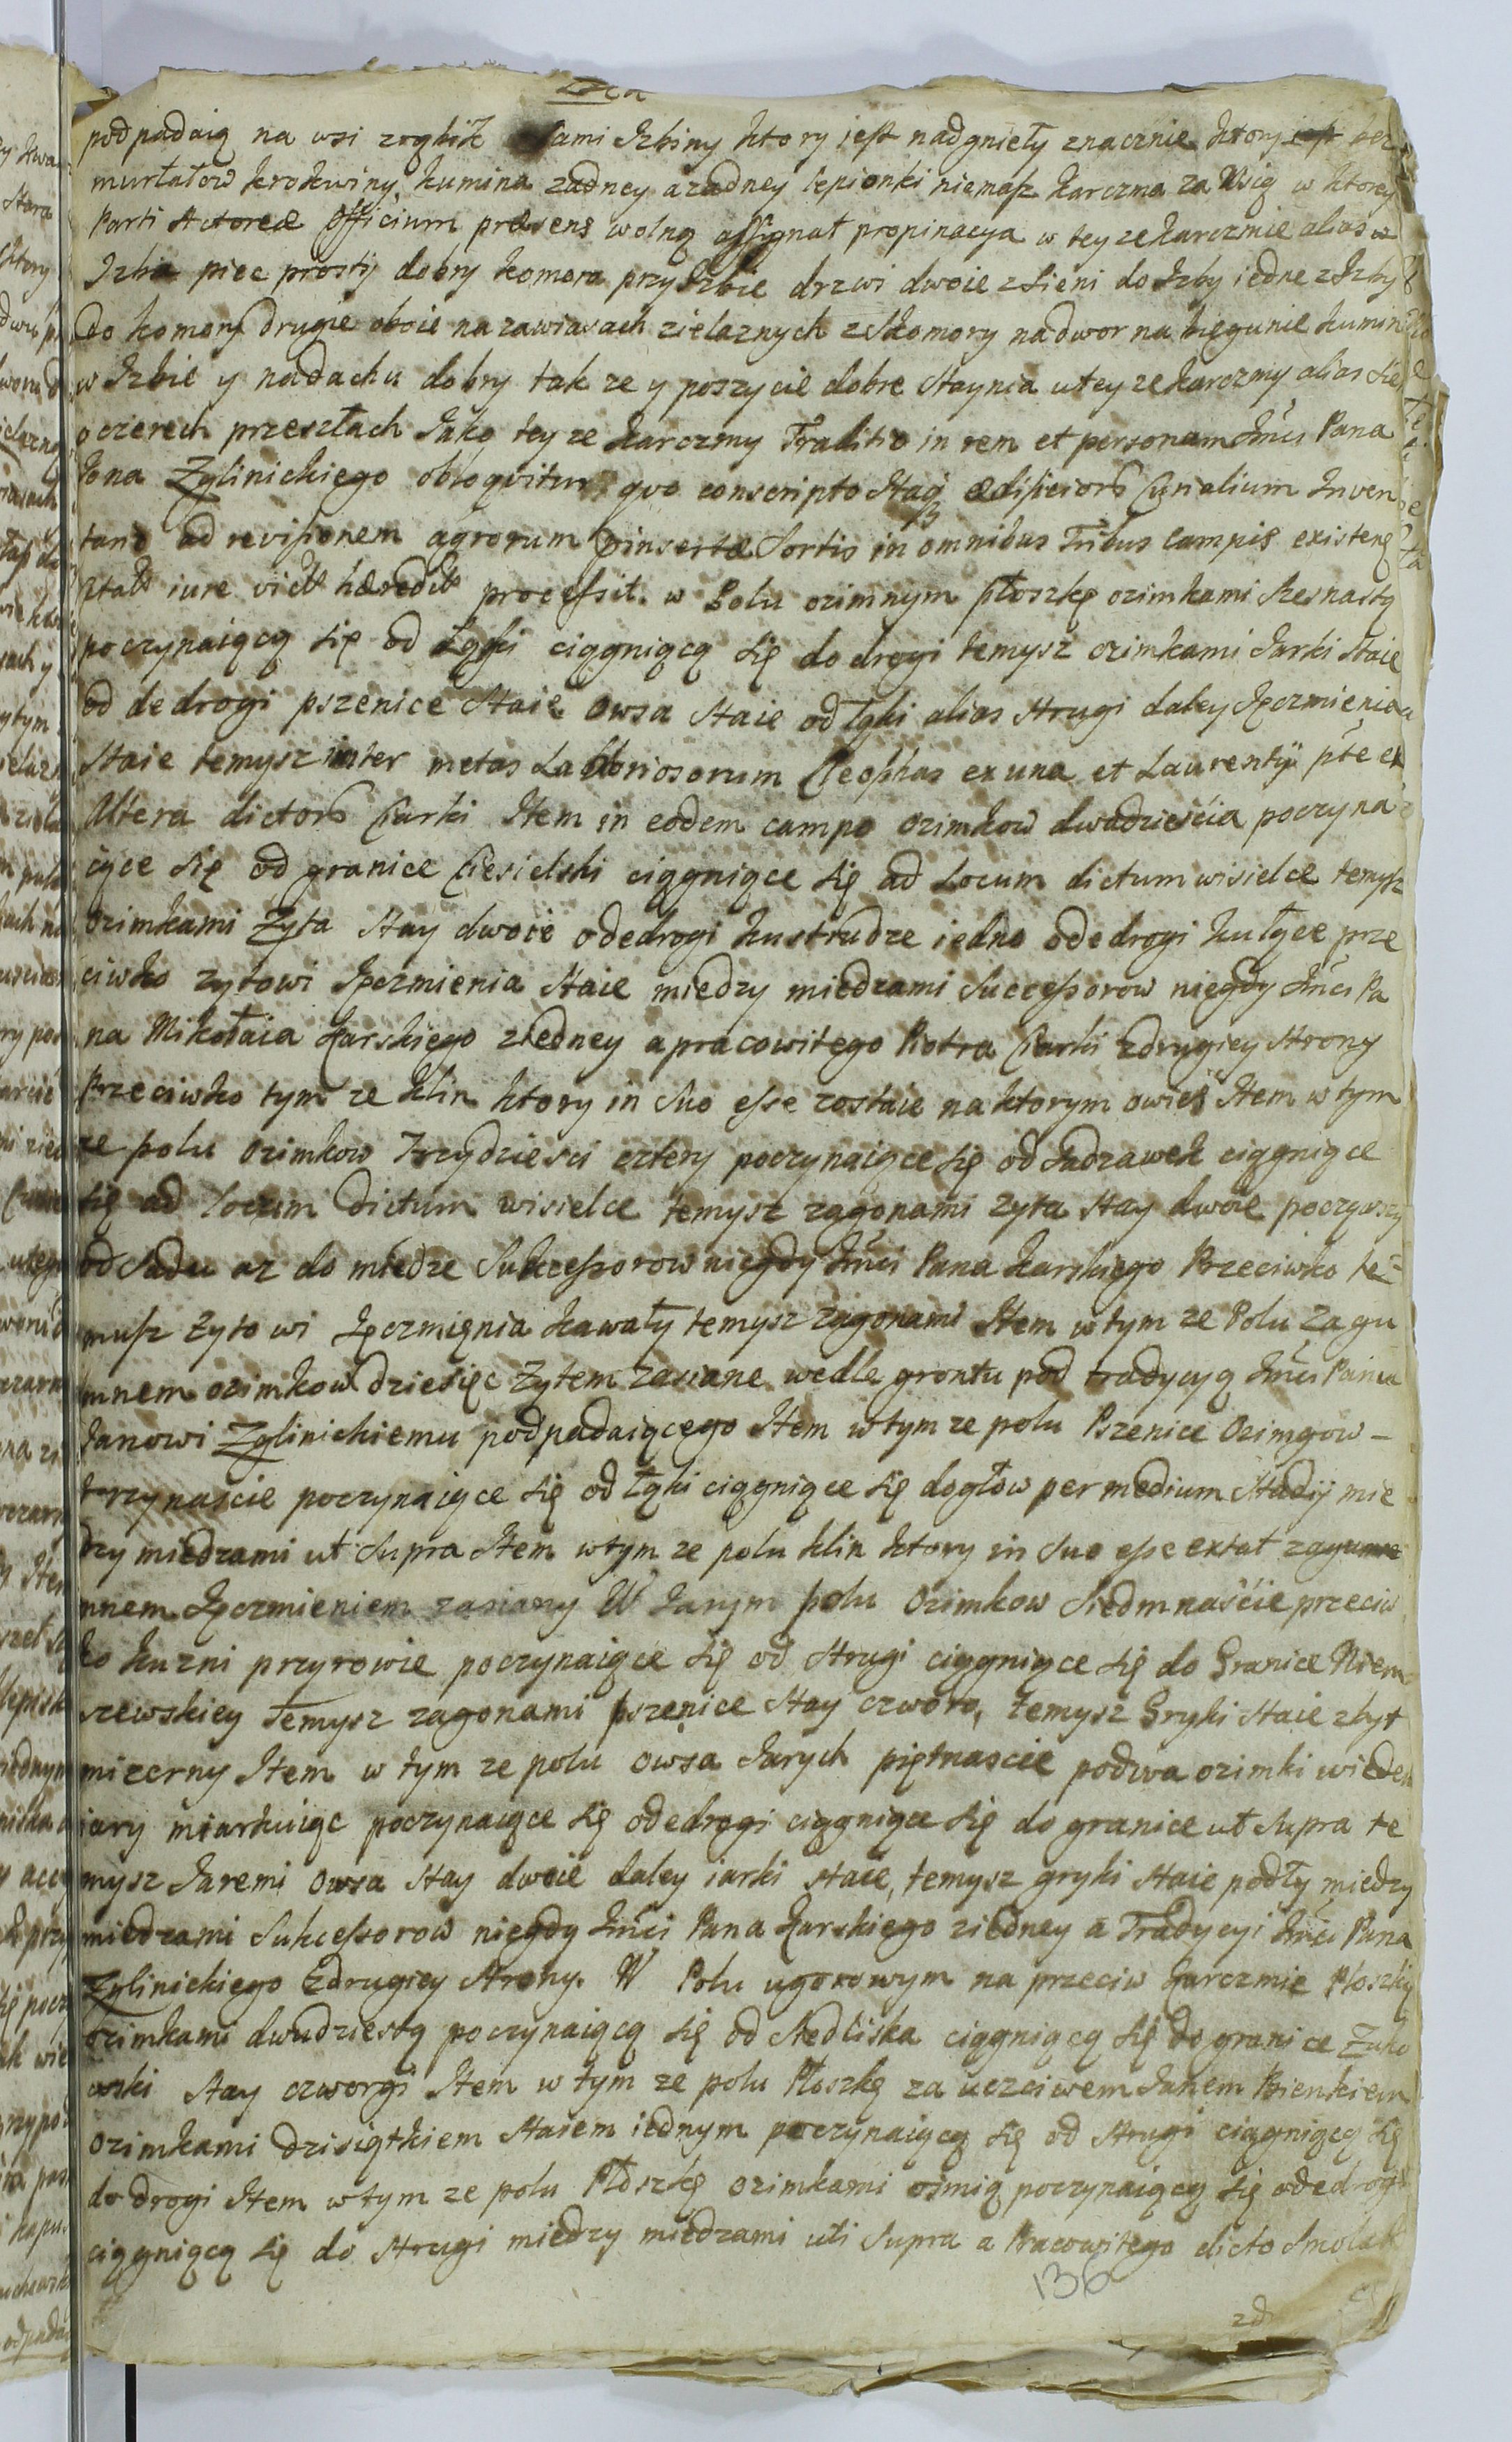 podpadaią na wsi zrąbik Sami Izbiny ktory iest nadgnieły znacznie ktory bez
murłatow krokwiny, kumina zadney azadney lepionki niemasz karczma za Wsią w ktorey
Parti Actoreæ Officium præsens wolną assignat propinacya w teyze karczmie alias w
Izba piec prosty dobry komora przy Izbie drzwi dwoie z Sieni do Izby iedne z Izby
do komory drugie oboie na zawiasach zielaznych z komory nadwor na biegunie kumin
w Izbie y nadachu dobry tak ze y poszycie dobre Staynia uteyze karczmy alias
oczerech przesztach Iako teyze karczmy Traditio in rem et personam Imci Pana
Jana Zylinickiego obloqvitur, qvo conscripto Curialium Inven
tario ad revisionem agrorum pinsertæ Sortis in omnibus Tribus Campis existen
iure processit. w Polu ozimnym płoszkę ozimkami Szesnastą
poczynaiącą się od Łąki ciągniącą się do drogi temysz ozimkami Iarki Staie
od dedrogi pszenice Staie Owsa Staie od łąki alias Strugi daley Ięczmienia
Staie temysz inter metas Laboriosorum Cleophas ex una et Laurentÿ pte ex
Altera dictor Ciurki Item in eodem campo ozimkow dwadzieścia poczyna
iące się od granice Ciesielski ciągniące się ad Locum dictum wisielce temysz
ozimkami Zyta Stay dwoie odedrogi ku strudze iedno odedrogi kułące prze
ciwko zytowi Ięczmienia Staie miedzy miedzami Successorow niegdy Imci Pa
na Mikołaia Karskiego ziedney a pracowitego Piotra Ciurki zdrugiey Strony
Przeciwko tym ze klin ktory in Suo esse zostaie naktorym owies Item w tym
ze polu ozimkow Trzydziesci cztery poczynaiące się od Sadzawek ciągniące
się ad locum dictum wisielce temysz zagonami zyta Stay dwoie poczowszy
od Sadu az do miedze Sukcessorow niegdy Imci Pana Karskiego Przeciwko te-
musz zytowi Ięczmięnia kawały temysz zagonami Item w tym ze Polu Zagu
mnem ozimkow dziesięc Zytem zasiane wedle grontu pod tradycyą Imci Panu
Ianowi Zylinickiemu podpadaiącego Item w tym ze polu Pszenice Ozimgow -
trzynascie poczynaiące się od łąki ciągniące się dogłow per medium Stadij mie
dzy miedzami ut Supra Item wtym ze polu klin ktory in Suo esse extat zagum
mnem Ięczmieniem zasiany W Iarym polu Ozimkow Siedmnaście przeciw
ko kuzni przyrowie poczynaiące się od Strugi ciągniące się do Granice Niem
szewskiey Temysz zagonami pszenice Stay czworo, temysz Gryki Staie zbyt
mizerny Item w tym ze polu Owsa Iarych piętnascie podwa ozimki wieden
iary miarkuiąc poczynaiące się odedrogi ciągniące się do granice ut Supra te
mysz Iaremi Owsa Stay dwoie daley iarki staie, temysz gryki Staie podły miedzy
miedzami Sukcessorow niegdy Imci Pana Karskiego ziedney a Tradycyi Imci Pana
Zylinickiego zdrugiey Strony. W Polu ugorowym na przeciw karczmie Płoszkę
ozimkami dwudziestą poczynaiącą się od Siedliska ciągniącą się do granice
Stay czworgi Item w tym ze polu Płoszkę za uczciwem Ianem Bienkiem
ozimkami dzisiątkiem Staiem iednym poczynaiącą się od Strugi ciągniącą się
do drogi Item wtym ze polu Płoszkę ozimkami osmią poczynaiącą się odedrogi
ciągniącą się do Strugi miedzy miedzami uti Supra a Pracowitego dicto Smolak
136
zd